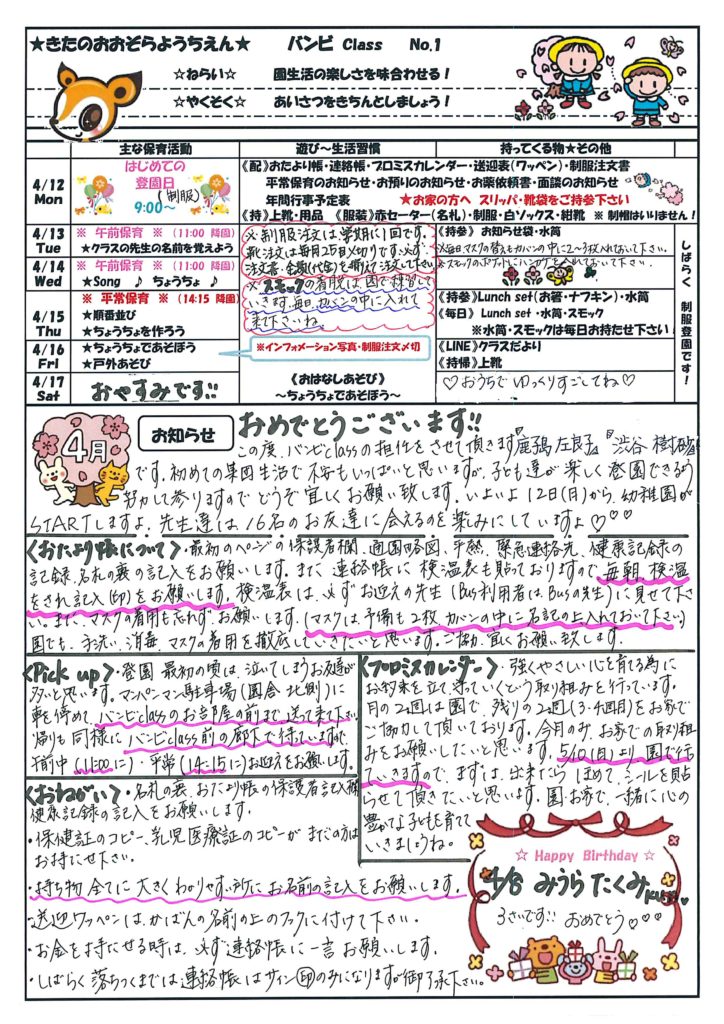 ★きたのおおぞらようちえん★ バンビ Class No.1
☆ねらい☆ 園生活の楽しさを味合わせる！
☆やくそく☆ あいさつをきちんとしましょう！
主な保育活動 遊び～生活習慣 持ってくる物★その他
4/12 Mon
はじめての
登園日
（制服）
9:00～
《配》おたより帳・連絡帳・プロミスカレンダー・送迎表（ワッペン）・制服注文書
平常保育のお知らせ・お預りのお知らせ・お薬依頼書・面談のお知らせ
年間行事予定表 ★お家の方へ スリッパ・靴袋をご持参下さい
《持》上靴・用品 《服装》赤セーター（名札）・制服・白ソックス・紺靴 ※ 制帽はいりません！
4/13 Tue
※ 午前保育 ※ （11:00 降園）
★クラスの先生の名前を覚えよう
4/14 Wed
※ 午前保育 ※ （11:00 降園）
★Song ♪ ちょうちょ ♪
4/15 Thu
※ 平常保育 ※ （14:15 降園）
★順番並び
★ちょうちょを作ろう
4/16 Fri
★ちょうちょであそぼう
★戸外あそび
4/17 Sat
おやすみです!!
※制服注文は学期に1回です。
靴注文は毎月25日〆切りです。必ず
注文書・金額（代金）を揃えて注文して下さい
※スモックの着脱は園で練習して
いきます。毎日カバンの中に入れて
来て下さいね
※インフォメーション写真・制服注文〆切
《おはなしあそび》
～ちょうちょであそぼう～
《持参》 お知らせ袋・水筒
※毎日マスクの替えもカバンの中に2〜3枚入れておいて下さい。
※スモックのポケットにハンカチを入れておいて下さい。
《持参》Lunch set（お箸・ナフキン）・水筒
《毎日》 Lunch set ・水筒・スモック
※水筒・スモックは毎日お持たせ下さい！
《LINE》クラスだより
《持帰》上靴
♡おうちでゆっくりすごしてね♡
しばらく 制服登園です！
4月
お知らせ
おめでとうございます!!
この度、バンビclassの担任をさせて頂きます『鹿嶌左良子』『渋谷 樹
です。初めての集団生活で不安もいっぱいと思いますが、子ども達が楽しく登園できるよう
努力して参りますのでどうぞ宜しくお願い致します。いよいよ12日（月）から、幼稚園が
STARTしますよ。先生達は16名のお友達に会えるのを楽しみにしていますよ♡♡♡
＜おたより帳について＞・最初のページの保護者欄、通園略図、平熱、緊急連絡先、健康記録の
記録、名札の裏の記入をお願いします。また連絡帳に検温表も貼っておりますので、毎朝検温
をされ記入（印）をお願いします。検温表は、必ずお迎えの先生（Bus利用者は、Busの先生）に見せて下さ
い。また、マスクの着用も忘れずお願いします。（マスクは予備も2枚、カバンの中に名記の上入れておいて下さい）
園でも、手洗い、消毒、マスクの着用を徹底していきたいと思います。ご協力宜しくお願い致します。
＜Pick up＞・登園最初の頃は、泣いてしまうお友達が
多いと思います。マンペンマン駐車場（園舎北側）に
車を停めて、バンビclassのお部屋の前まで送って来て下さい
帰りも同様にバンビclass前の廊下で待っていますので
午前中（11:00に）・平常（14:15に）お迎えをお願いします。
＜プロミスカレンダー＞・強くやさしい心を育てる為に
お約束を立て、守っていくという取り組みを行っています。
月の2週は園で、残りの2週（3・4週目）をお家で
ご協力して頂いております。今月のみ、お家での取り組
みをお願いしたいと思います。5/10（月）より園で行っ
ていきますので、まずは、出来たらほめて、シールを貼
らせて頂きたいと思います。園、お家で、一緒に心の
豊かな子どもを育てて
いきましょうね。
＜おねがい＞・名札の裏、おたより帳の保護者記入欄
健康記録の記入をお願いします。
・保健証のコピー、乳児医療証のコピーがまだの方は
お持たせ下さい。
・持ち物全てに大きくわかりやすい所にお名前の記入をお願いします。
・送迎ワッペンは、かばんの名前の上のフックに付けて下さい。
・お金をお持たせる時は、必ず連絡帳に一言お願いします。
・しばらく落ちつくまでは連絡帳はサイン㊞のみになりますが御了承下さい。
☆ Happy Birthday ☆
4/8 みうら たくみkun♡
3さいです!! おめでとう♡♡♡